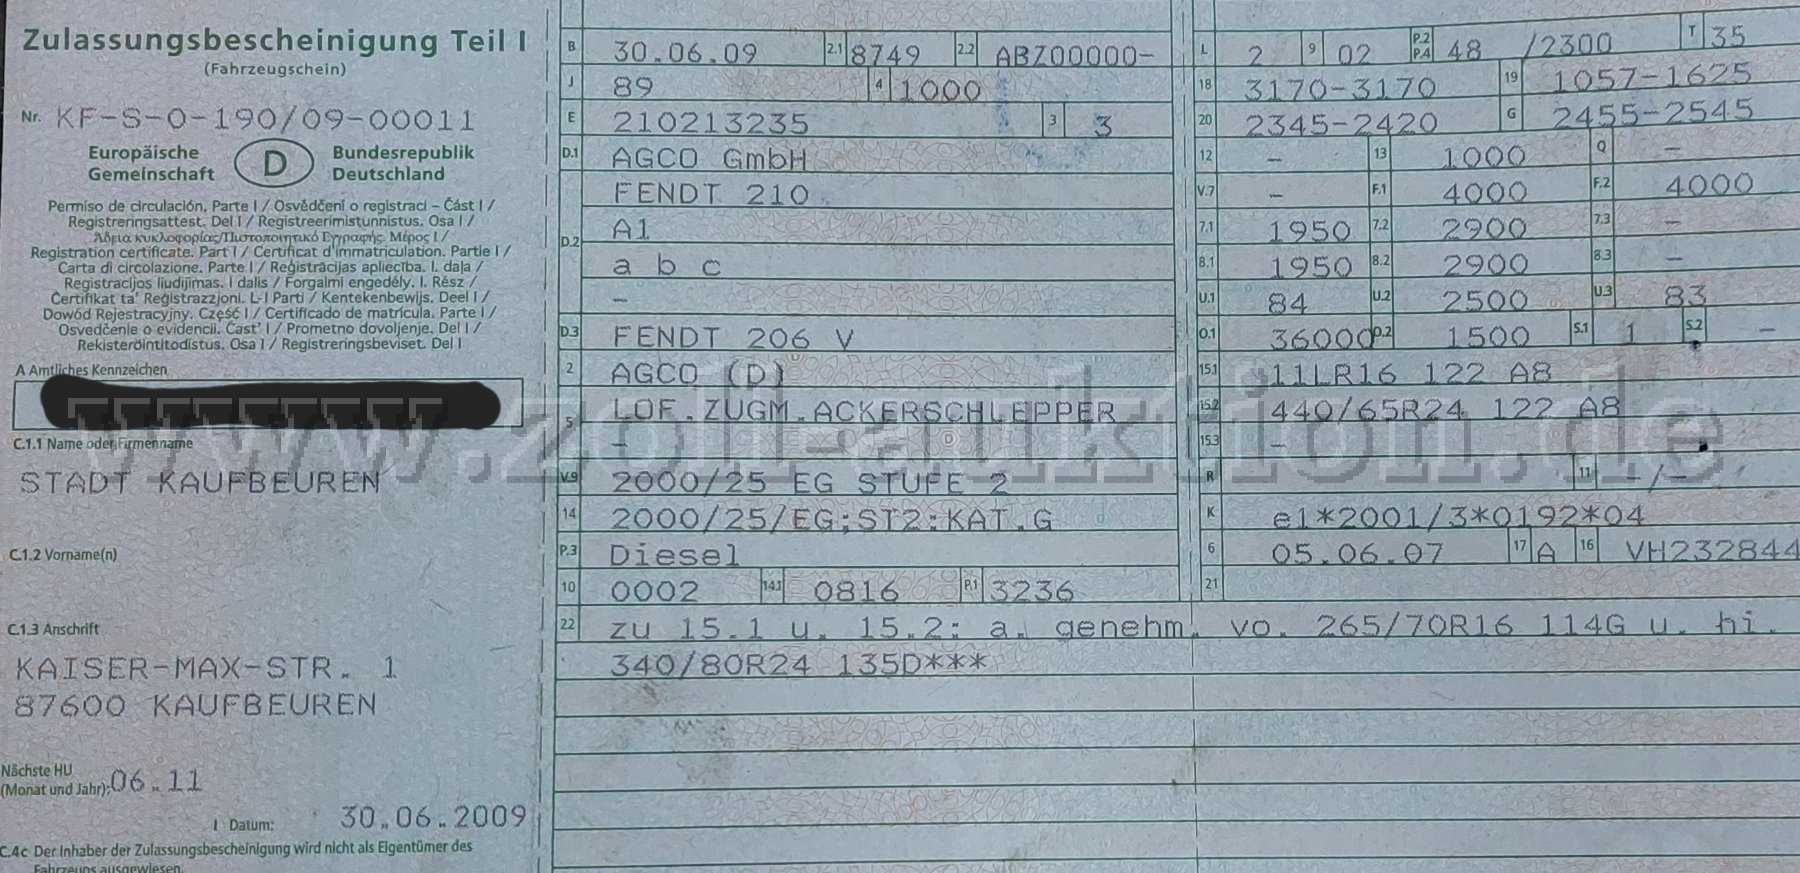 Zulassungsbescheinigung Teil I
(Fahrzeugschein)
Nr. KF-S-0-190/09-00011
Europäische Gemeinschaft D Bundesrepublik Deutschland
Permiso de circulación. Parte I / Osvědčení o registraci – Část I /
Registreringsattest. Del I / Registreerimistunnistus. Osa I /
Άδεια κυκλοφορίας/Πιστοποιητικό Εγγραφής. Μέρος I /
Registration certificate. Part I / Certificat d'immatriculation. Partie I /
Carta di circolazione. Parte I / Reģistrācijas apliecība. I. daļa /
Registracijos liudijimas. I dalis / Forgalmi engedély. I. Rész /
Ċertifikat ta' Reġistrazzjoni. L-I Parti / Kentekenbewijs. Deel I /
Dowód Rejestracyjny. Część I / Certificado de matrícula. Parte I /
Osvedčenie o evidencii. Časť I / Prometno dovoljenje. Del I /
Rekisteröintitodistus. Osa I / Registreringsbeviset. Del I
A Amtliches Kennzeichen
C.1.1 Name oder Firmenname
STADT KAUFBEUREN
C.1.2 Vorname(n)
C.1.3 Anschrift
KAISER-MAX-STR. 1
87600 KAUFBEUREN
Nächste HU
(Monat und Jahr): 06.11
I Datum: 30.06.2009
C.4c Der Inhaber der Zulassungsbescheinigung wird nicht als Eigentümer des
Fahrzeugs ausgewiesen.
B 30.06.09 2.1 8749 2.2 ABZ00000-
J 89 4 1000
E 210213235 3 3
D.1 AGCO GmbH
FENDT 210
D.2 A1
a b c
–
D.3 FENDT 206 V
2 AGCO (D)
5 LOF.ZUGM.ACKERSCHLEPPER
–
V.9 2000/25 EG STUFE 2
14 2000/25/EG;ST2:KAT.G
P.3 Diesel
10 0002 14.1 0816 P.1 3236
22 zu 15.1 u. 15.2: a. genehm. vo. 265/70R16 114G u. hi.
340/80R24 135D***
L 2 9 02 P.2 P.4 48 /2300 T 35
18 3170-3170 19 1057-1625
20 2345-2420 G 2455-2545
12 – 13 1000 Q –
V.7 – F.1 4000 F.2 4000
7.1 1950 7.2 2900 7.3 –
8.1 1950 8.2 2900 8.3 –
U.1 84 U.2 2500 U.3 83
O.1 36000 O.2 1500 S.1 1 S.2 –
15.1 11LR16 122 A8
15.2 440/65R24 122 A8
15.3 –
R 11 -/-
K e1*2001/3*0192*04
6 05.06.07 17 A 16 VH232844
21
www.zoll-auktion.de